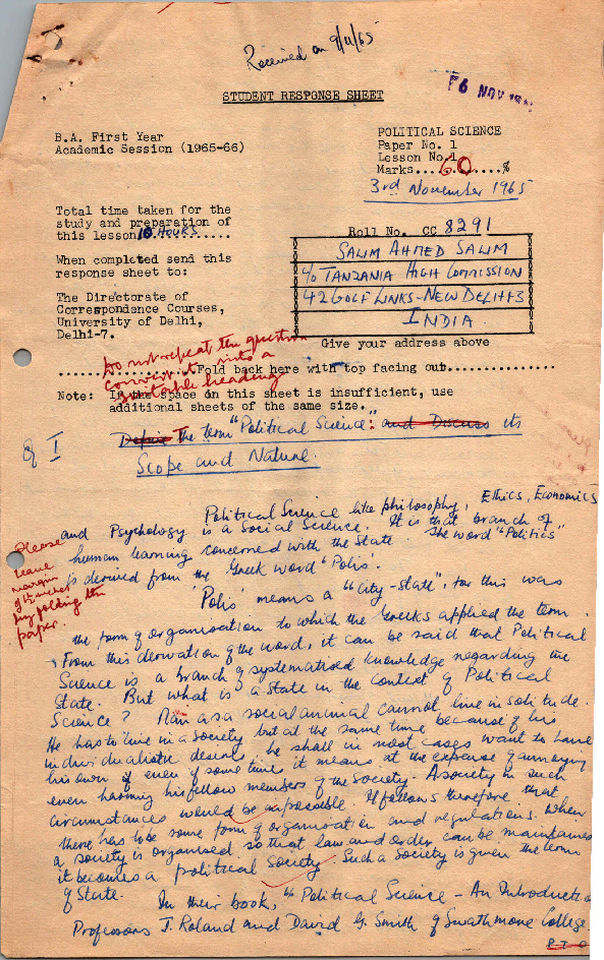 Received on 9/11/65
STUDENT RESPONSE SHEET
6 NOV 19
B.A. First Year
Academic Session (1965-66)
POLITICAL SCIENCE
Paper No. 1
Lesson No.1
Marks....60....%
3rd November 1965
Total time taken for the
study and preparation of
this lesson 10 HOURS
When completed send this
response sheet to:
The Directorate of
Correspondence Courses,
University of Delhi,
Delhi-7.
Roll No. CC 8291
SALIM AHMED SALIM
C/o TANZANIA HIGH COMMISSION
42 GOLF LINKS - NEW DELHI-3
INDIA
Give your address above
Do not repeat the question
convert it into a
suitable heading
Fold back here with top facing out
Note: If the space on this sheet is insufficient, use
additional sheets of the same size.
Q I
Define The term "Political Science": and Discuss its
Scope and Nature.
Political Science like philosophy, Ethics, Economics
and Psychology is a Social Science. It is that branch of
human learning concerned with the State. The word "Politics"
is derived from the Greek word "Polis.
Please
leave
margin
for folding the
paper.
'Polis' means a "City-State", for this was
the form of organisation to which the Greeks applied the term.
From this derivation of the word, it can be said that Political
Science is a branch of systematised knowledge regarding the
State. But what is a State in the context of Political
Science? Man as a social animal cannot live in solitude.
He has to live in a Society but at the same time because of his
individualistic desires, he shall in most cases want to have
his own if even if some time it means at the expense of
even harming his fellow members of the Society. A society in such
circumstances would be impossible. It follows therefore that
there has to be some form of organisation and regulations. When
a society is organised so that law and order can be maintained
it becomes a political Society. Such a Society is given the term
of State.
In their book, "Political Science - An Introduction
Professors J. Roland and David G. Smith of Swathmore College
P.T.O